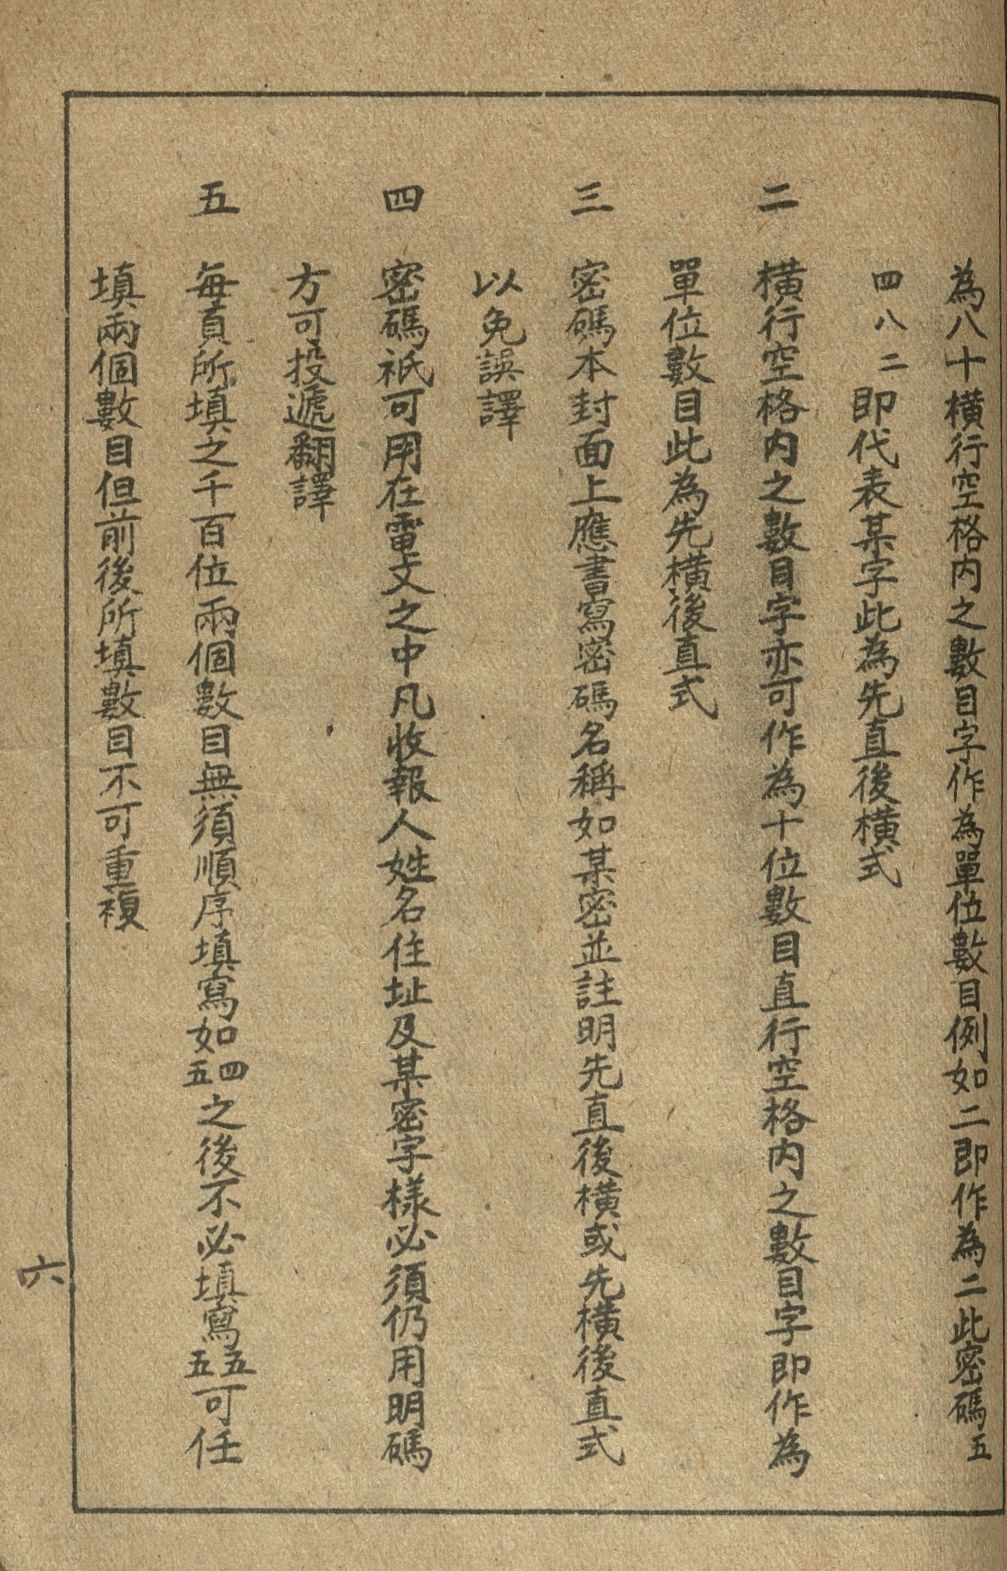 為八十橫行空格内之數目字作為單位數目例如二即作為二此密碼五
四八二即代表某字此為先直後橫式
二 橫行空格内之數目字亦可作為十位數目直行空格内之數目字即作為
單位數目此為先橫後直式
三 密碼本封面上應書寫密碼名稱如某密並註明先直後橫或先橫後直式
以免誤譯
四 密碼祇可用在電文之中凡收報人姓名住址及某密字樣必須仍用明碼
方可投遞翻譯
五 每頁所填之千百位兩個數目無須順序填寫如四五之後不必填寫五五可任
填兩個數目但前後所填數目不可重複
六